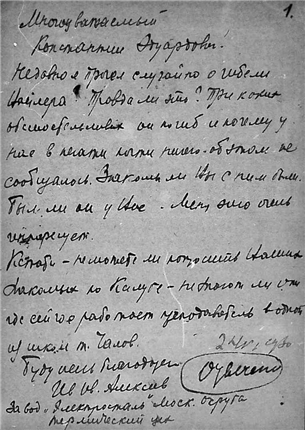 1.
Многоуважаемый
Константин Эдуардович.
Недавно я прочел случайно о гибели
Цандера? Правда ли это? При каких
обстоятельствах он погиб и почему у
нас в печати почти ничего об этом не
сообщалось. Знакомы ли Вы с ним были.
Был ли он у Вас. Меня это очень
интересует.
Кстати - не можете ли попросить Ваших
знакомых по Калуге - не знают ли они
где сейчас работает преподаватель в одной
из школ т. Чалов.
Буду очень благодарен
Ив Ив. Алексеев
Завод "Электросталь" Моск. округа
термический цех